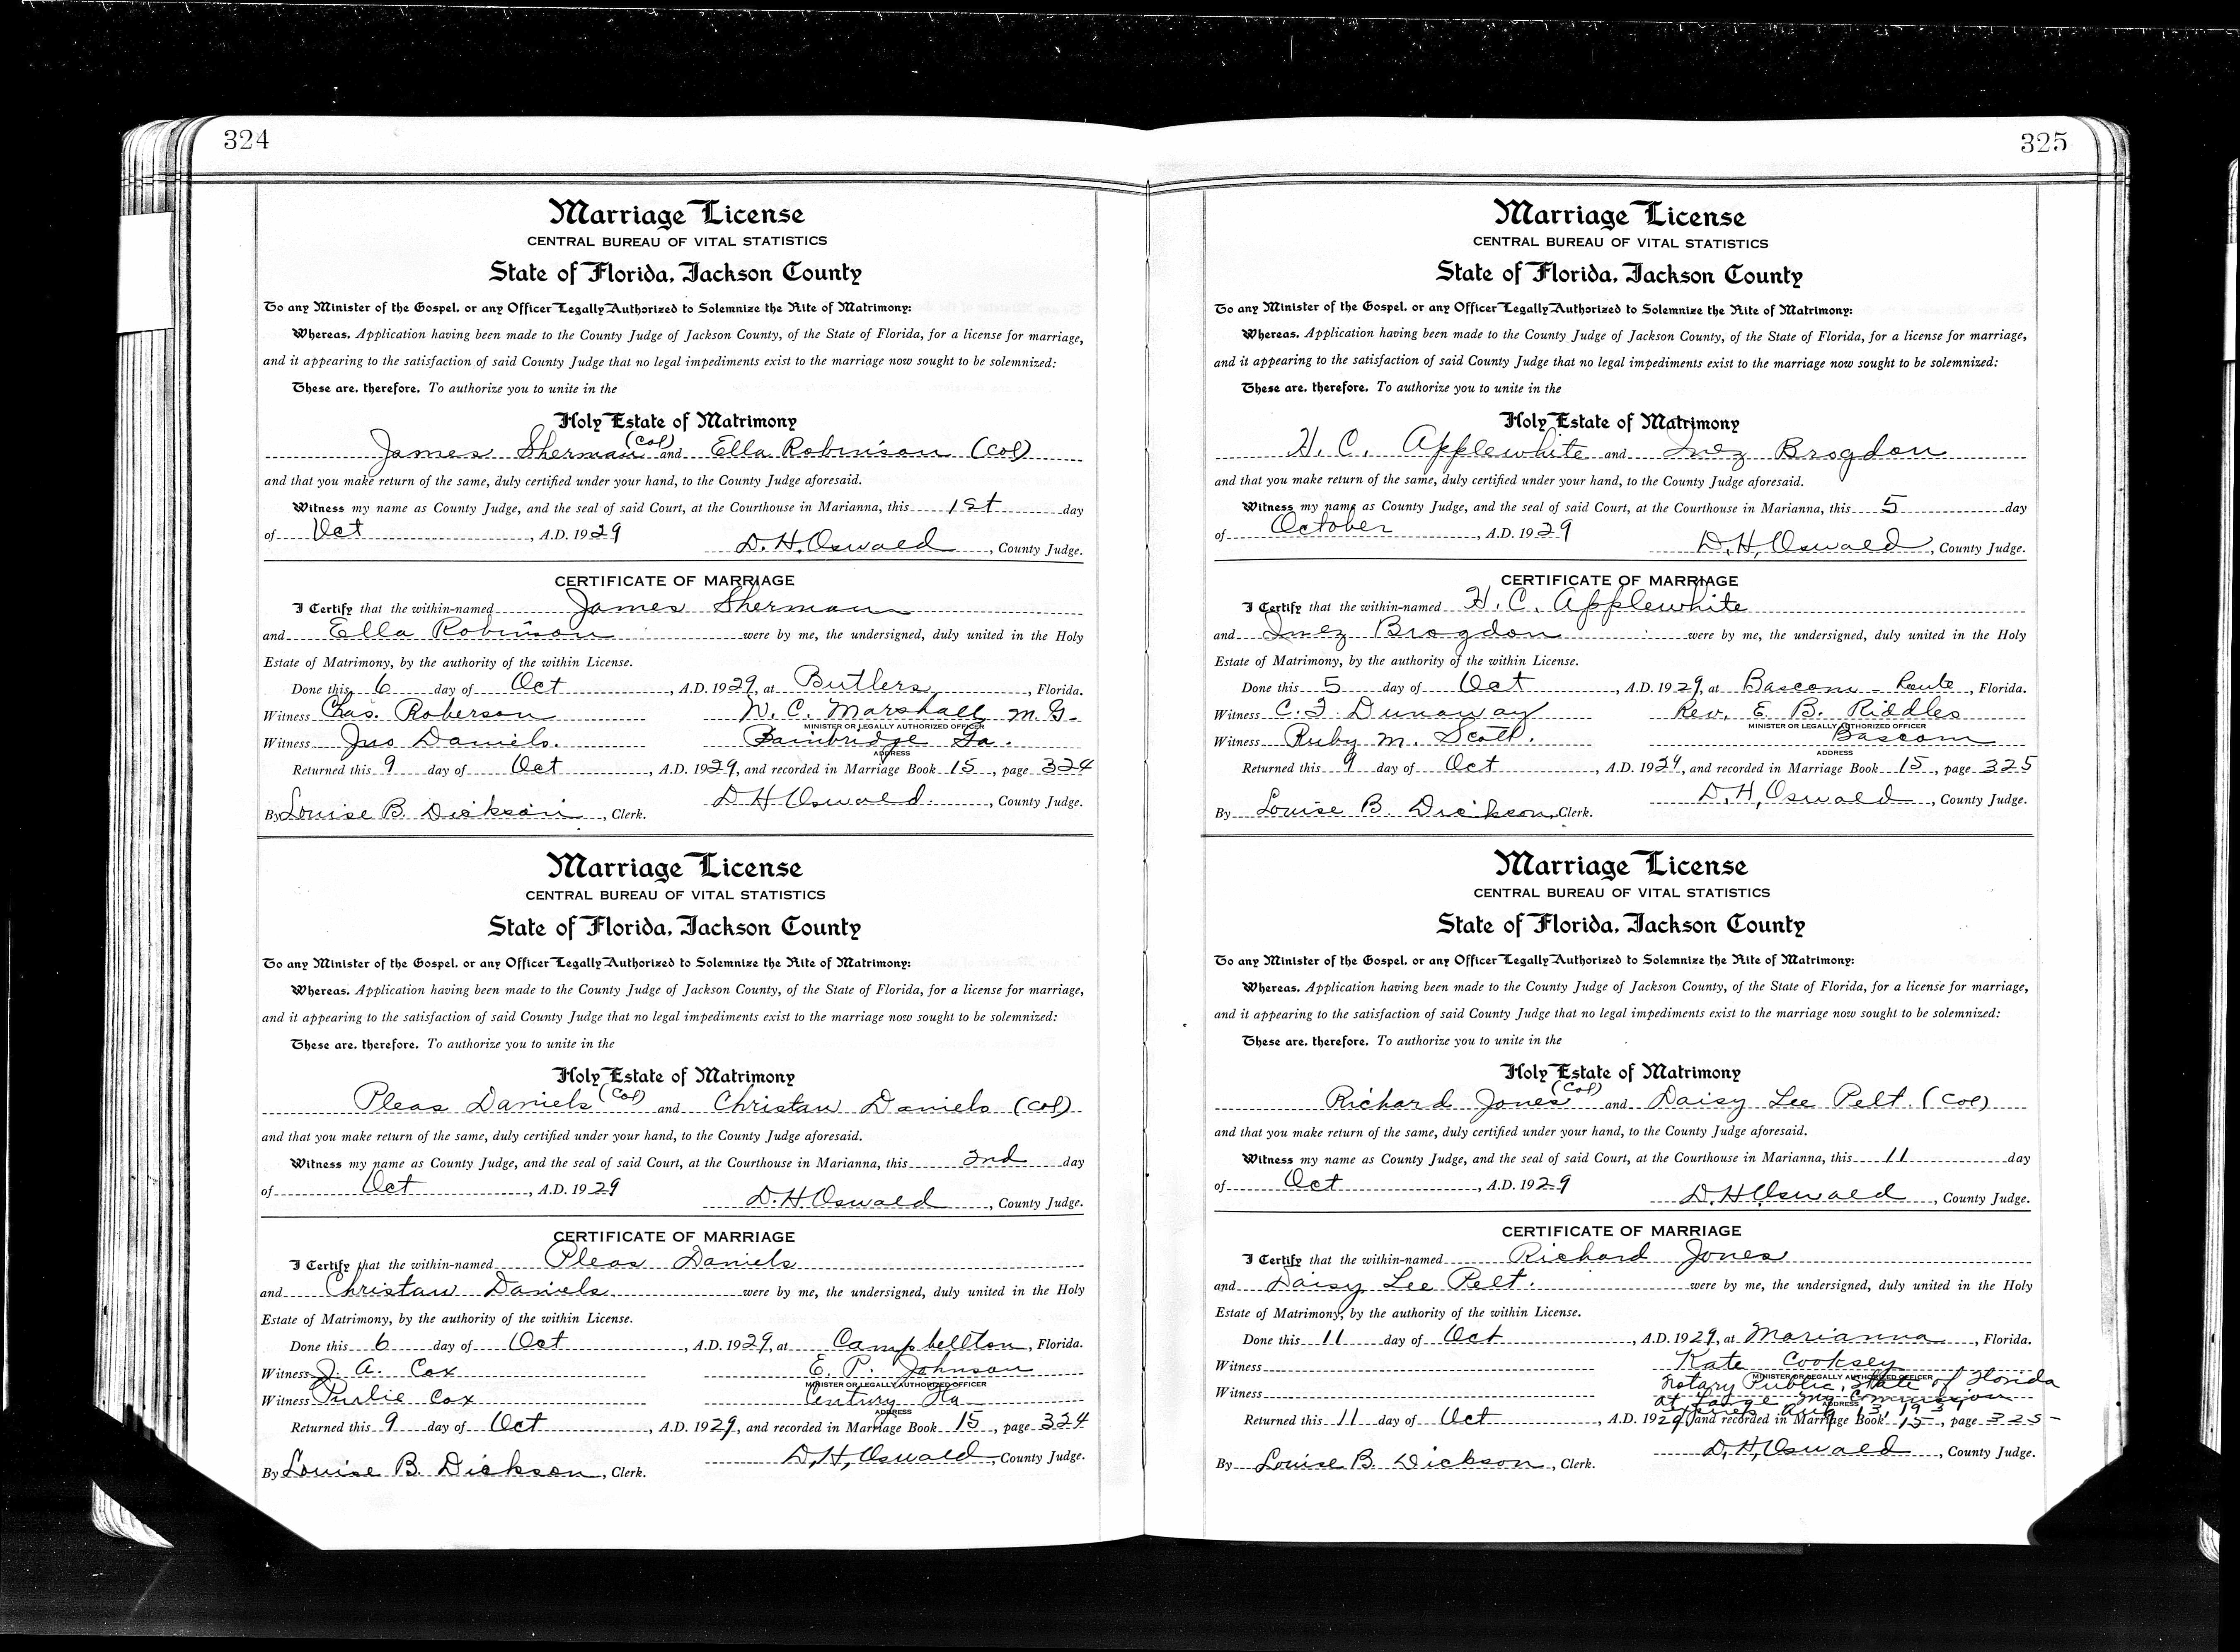 324
Marriage License
CENTRAL BUREAU OF VITAL STATISTICS
State of Florida, Jackson County
To any Minister of the Gospel, or any Officer Legally Authorized to Solemnize the Rite of Matrimony:
Whereas, Application having been made to the County Judge of Jackson County, of the State of Florida, for a license for marriage,
and it appearing to the satisfaction of said County Judge that no legal impediments exist to the marriage now sought to be solemnized:
These are, therefore, To authorize you to unite in the
Holy Estate of Matrimony
James Sherman (Col) and Ella Robinson (Col)
and that you make return of the same, duly certified under your hand, to the County Judge aforesaid.
Witness my name as County Judge, and the seal of said Court, at the Courthouse in Marianna, this 1st day
of Oct, A.D. 1929 D.H. Oswald, County Judge.
CERTIFICATE OF MARRIAGE
I Certify that the within-named James Sherman
and Ella Robinson were by me, the undersigned, duly united in the Holy
Estate of Matrimony, by the authority of the within License.
Done this 6 day of Oct, A.D. 1929, at Butlers, Florida.
Witness Chas. Roberson W. C. Marshall M.G.
MINISTER OR LEGALLY AUTHORIZED OFFICER
Witness Jno Daniels. Bainbridge Ga.
ADDRESS
Returned this 9 day of Oct, A.D. 1929, and recorded in Marriage Book 15, page 324
D H Oswald., County Judge.
By Louise B. Dickson, Clerk.
Marriage License
CENTRAL BUREAU OF VITAL STATISTICS
State of Florida, Jackson County
To any Minister of the Gospel, or any Officer Legally Authorized to Solemnize the Rite of Matrimony:
Whereas, Application having been made to the County Judge of Jackson County, of the State of Florida, for a license for marriage,
and it appearing to the satisfaction of said County Judge that no legal impediments exist to the marriage now sought to be solemnized:
These are, therefore, To authorize you to unite in the
Holy Estate of Matrimony
Pleas Daniels (Col) and Christan Daniels (Col)
and that you make return of the same, duly certified under your hand, to the County Judge aforesaid.
Witness my name as County Judge, and the seal of said Court, at the Courthouse in Marianna, this 2nd day
of Oct, A.D. 1929 D.H. Oswald, County Judge.
CERTIFICATE OF MARRIAGE
I Certify that the within-named Pleas Daniels
and Christan Daniels were by me, the undersigned, duly united in the Holy
Estate of Matrimony, by the authority of the within License.
Done this 6 day of Oct, A.D. 1929, at Campbellton, Florida.
Witness J. A. Cox E. P. Johnson
MINISTER OR LEGALLY AUTHORIZED OFFICER
Witness Purlie Cox Century Fla
ADDRESS
Returned this 9 day of Oct, A.D. 1929, and recorded in Marriage Book 15, page 324
D,H, Oswald, County Judge.
By Louise B. Dickson, Clerk.
325
Marriage License
CENTRAL BUREAU OF VITAL STATISTICS
State of Florida, Jackson County
To any Minister of the Gospel, or any Officer Legally Authorized to Solemnize the Rite of Matrimony:
Whereas, Application having been made to the County Judge of Jackson County, of the State of Florida, for a license for marriage,
and it appearing to the satisfaction of said County Judge that no legal impediments exist to the marriage now sought to be solemnized:
These are, therefore, To authorize you to unite in the
Holy Estate of Matrimony
H. C. Applewhite and Inez Brogdon
and that you make return of the same, duly certified under your hand, to the County Judge aforesaid.
Witness my name as County Judge, and the seal of said Court, at the Courthouse in Marianna, this 5 day
of October, A.D. 1929 D,H, Oswald, County Judge.
CERTIFICATE OF MARRIAGE
I Certify that the within-named H. C. Applewhite
and Inez Brogdon were by me, the undersigned, duly united in the Holy
Estate of Matrimony, by the authority of the within License.
Done this 5 day of Oct, A.D. 1929, at Bascom - Route, Florida.
Witness C. F. Dunaway Rev. E. B. Riddles
MINISTER OR LEGALLY AUTHORIZED OFFICER
Witness Ruby M. Scott. Bascom
ADDRESS
Returned this 9 day of Oct, A.D. 1929, and recorded in Marriage Book 15, page 325
D,H, Oswald, County Judge.
By Louise B. Dickson, Clerk.
Marriage License
CENTRAL BUREAU OF VITAL STATISTICS
State of Florida, Jackson County
To any Minister of the Gospel, or any Officer Legally Authorized to Solemnize the Rite of Matrimony:
Whereas, Application having been made to the County Judge of Jackson County, of the State of Florida, for a license for marriage,
and it appearing to the satisfaction of said County Judge that no legal impediments exist to the marriage now sought to be solemnized:
These are, therefore, To authorize you to unite in the
Holy Estate of Matrimony
Richard Jones (Col) and Daisy Lee Pelt. (Col)
and that you make return of the same, duly certified under your hand, to the County Judge aforesaid.
Witness my name as County Judge, and the seal of said Court, at the Courthouse in Marianna, this 11 day
of Oct, A.D. 1929 D.H Oswald, County Judge.
CERTIFICATE OF MARRIAGE
I Certify that the within-named Richard Jones
and Daisy Lee Pelt. were by me, the undersigned, duly united in the Holy
Estate of Matrimony, by the authority of the within License.
Done this 11 day of Oct, A.D. 1929, at Marianna, Florida.
Witness Kate Cooksey
MINISTER OR LEGALLY AUTHORIZED OFFICER
Witness Notary Public, State of Florida
at Large My Commission
ADDRESS
expires Aug 13, 193
Returned this 11 day of Oct, A.D. 1929, and recorded in Marriage Book 15, page 325
D,H, Oswald, County Judge.
By Louise B. Dickson, Clerk.